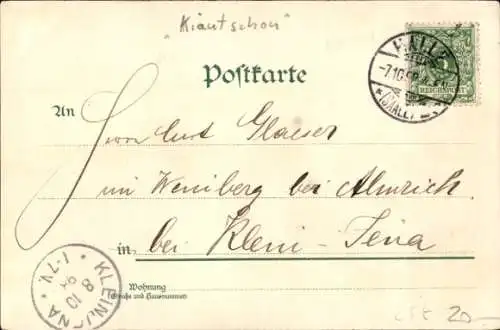 "Kiautschou"
HALLE
-7.10.98
*(SAALE)
REICHSPOST
Postkarte
An
Herrn Curt Glaeser
im Weinberg bei Almrich
in bei Klein-Jena
Wohnung
(Straße und Hausnummer)
KLEINJENA
8 10 98
1-7V.
20